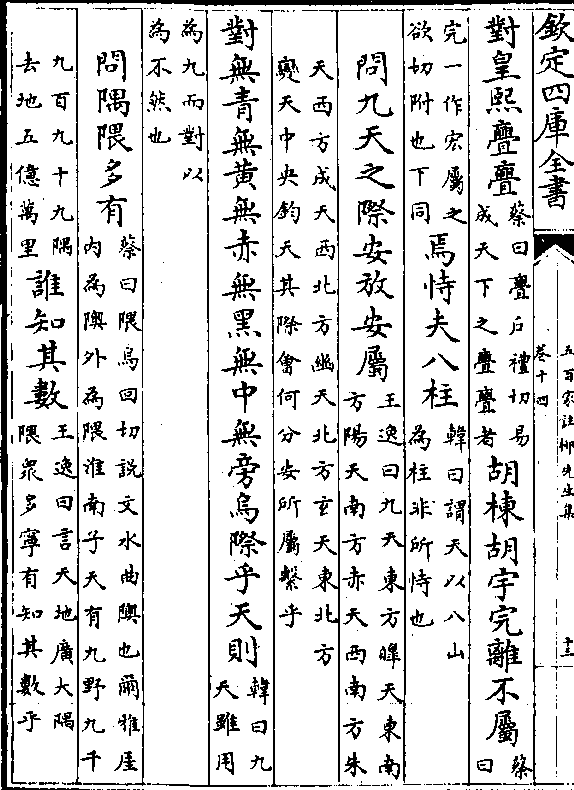 欽定四庫全書
五百家註柳先生集
卷十四
十三
對皇熙亹亹
蔡曰亹戶禮切易
成天下之亹亹者
胡棟胡宇完離不屬
蔡曰
完一作宏屬之
欲切附也下同
焉恃夫八柱
韓曰謂天以八山
為柱非所恃也
問九天之際安放安屬
王逸曰九天東方皥天東南
方陽天南方赤天西南方朱
天西方成天西北方幽天北方玄天東北方
變天中央鈞天其際會何分安所屬繫乎
對無青無黄無赤無黑無中無旁烏際乎天則
韓曰九
天雖用
為九而對以
為不然也
問隅隈多有
蔡曰隈烏回切說文水曲隩也爾雅厓
内為隩外為隈淮南子天有九野九千
九百九十九隅
去地五億萬里
誰知其數
王逸曰言天地廣大隅
隈衆多寧有知其數乎